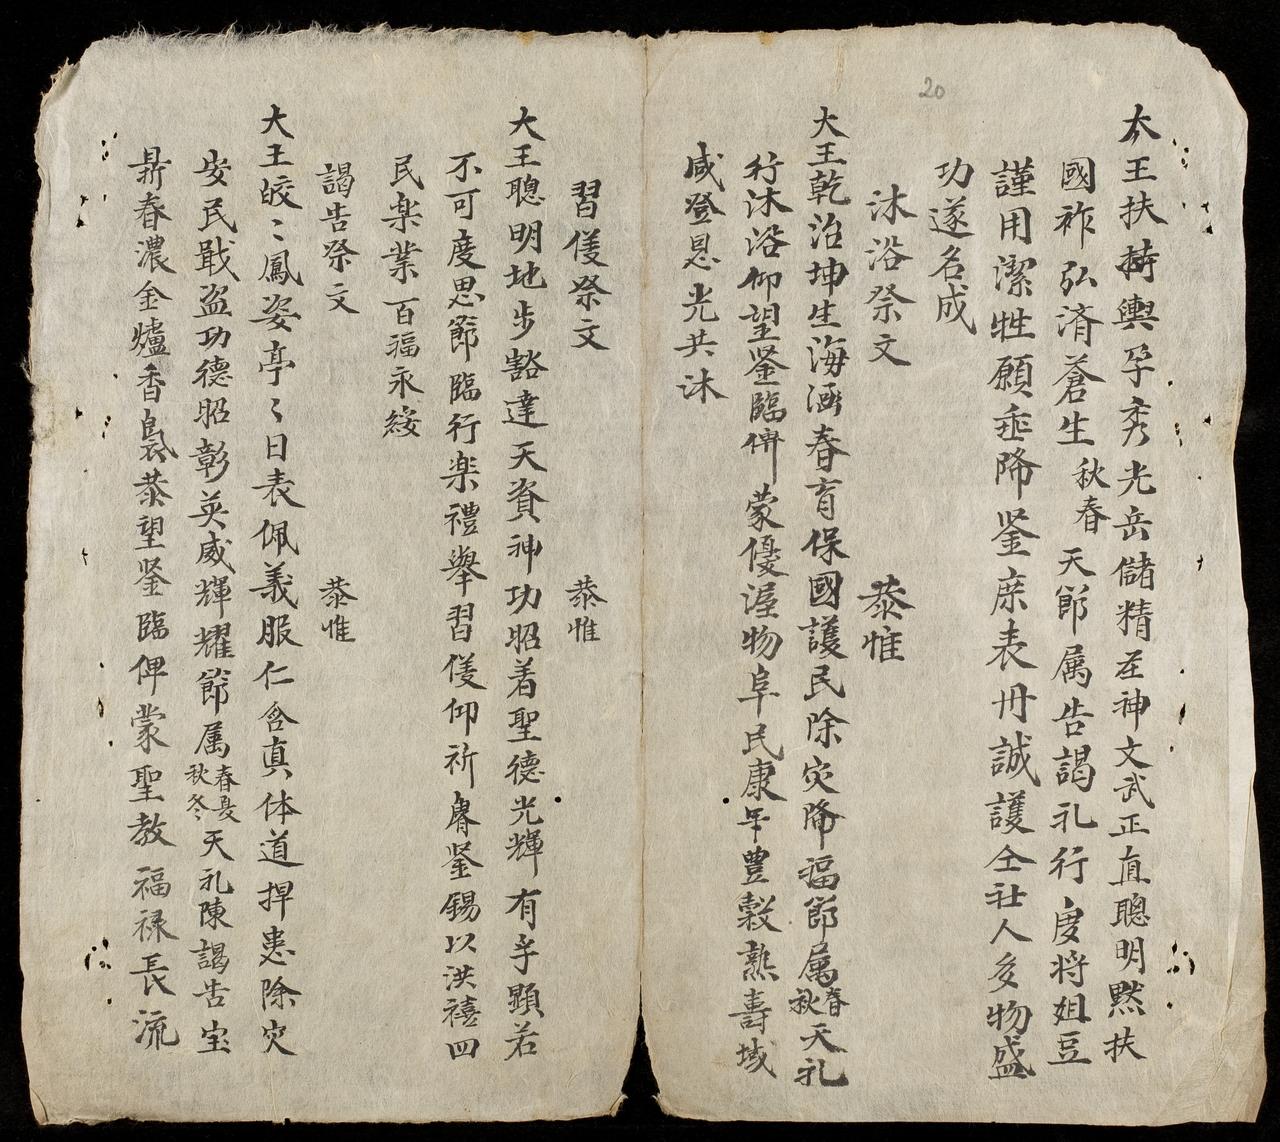 20
大王扶持輿孕秀光岳儲精在神文武正直聰明黙扶
國祚弘済蒼生秋春天節属告謁礼行度将姐豆
謹用潔牲願垂降鉴庶表丹誠護仝社人多物盛
功遂名成
沐浴祭文 恭惟
大王乾治坤生海涵春育保國護民除灾降福節属春秋天礼
行沐浴仰望鉴臨俾蒙優渥物阜民康年豊穀熟壽域
咸登恩光共沐
習儀祭文 恭惟
大王聰明地步豁達天資神功昭着聖德光輝有孚顕若
不可度思節臨行楽禮舉習儀仰祈睿鉴錫以洪禧四
民楽業百福永綏
謁告祭文 恭惟
大王皎〻鳳姿亭〻日表佩義服仁含真体道捍患除灾
安民戢盗功德昭彰英威輝耀節属春夏秋冬天礼陳謁告宝
鼎春濃金爐香裊恭望鉴臨俾蒙聖教福禄長流